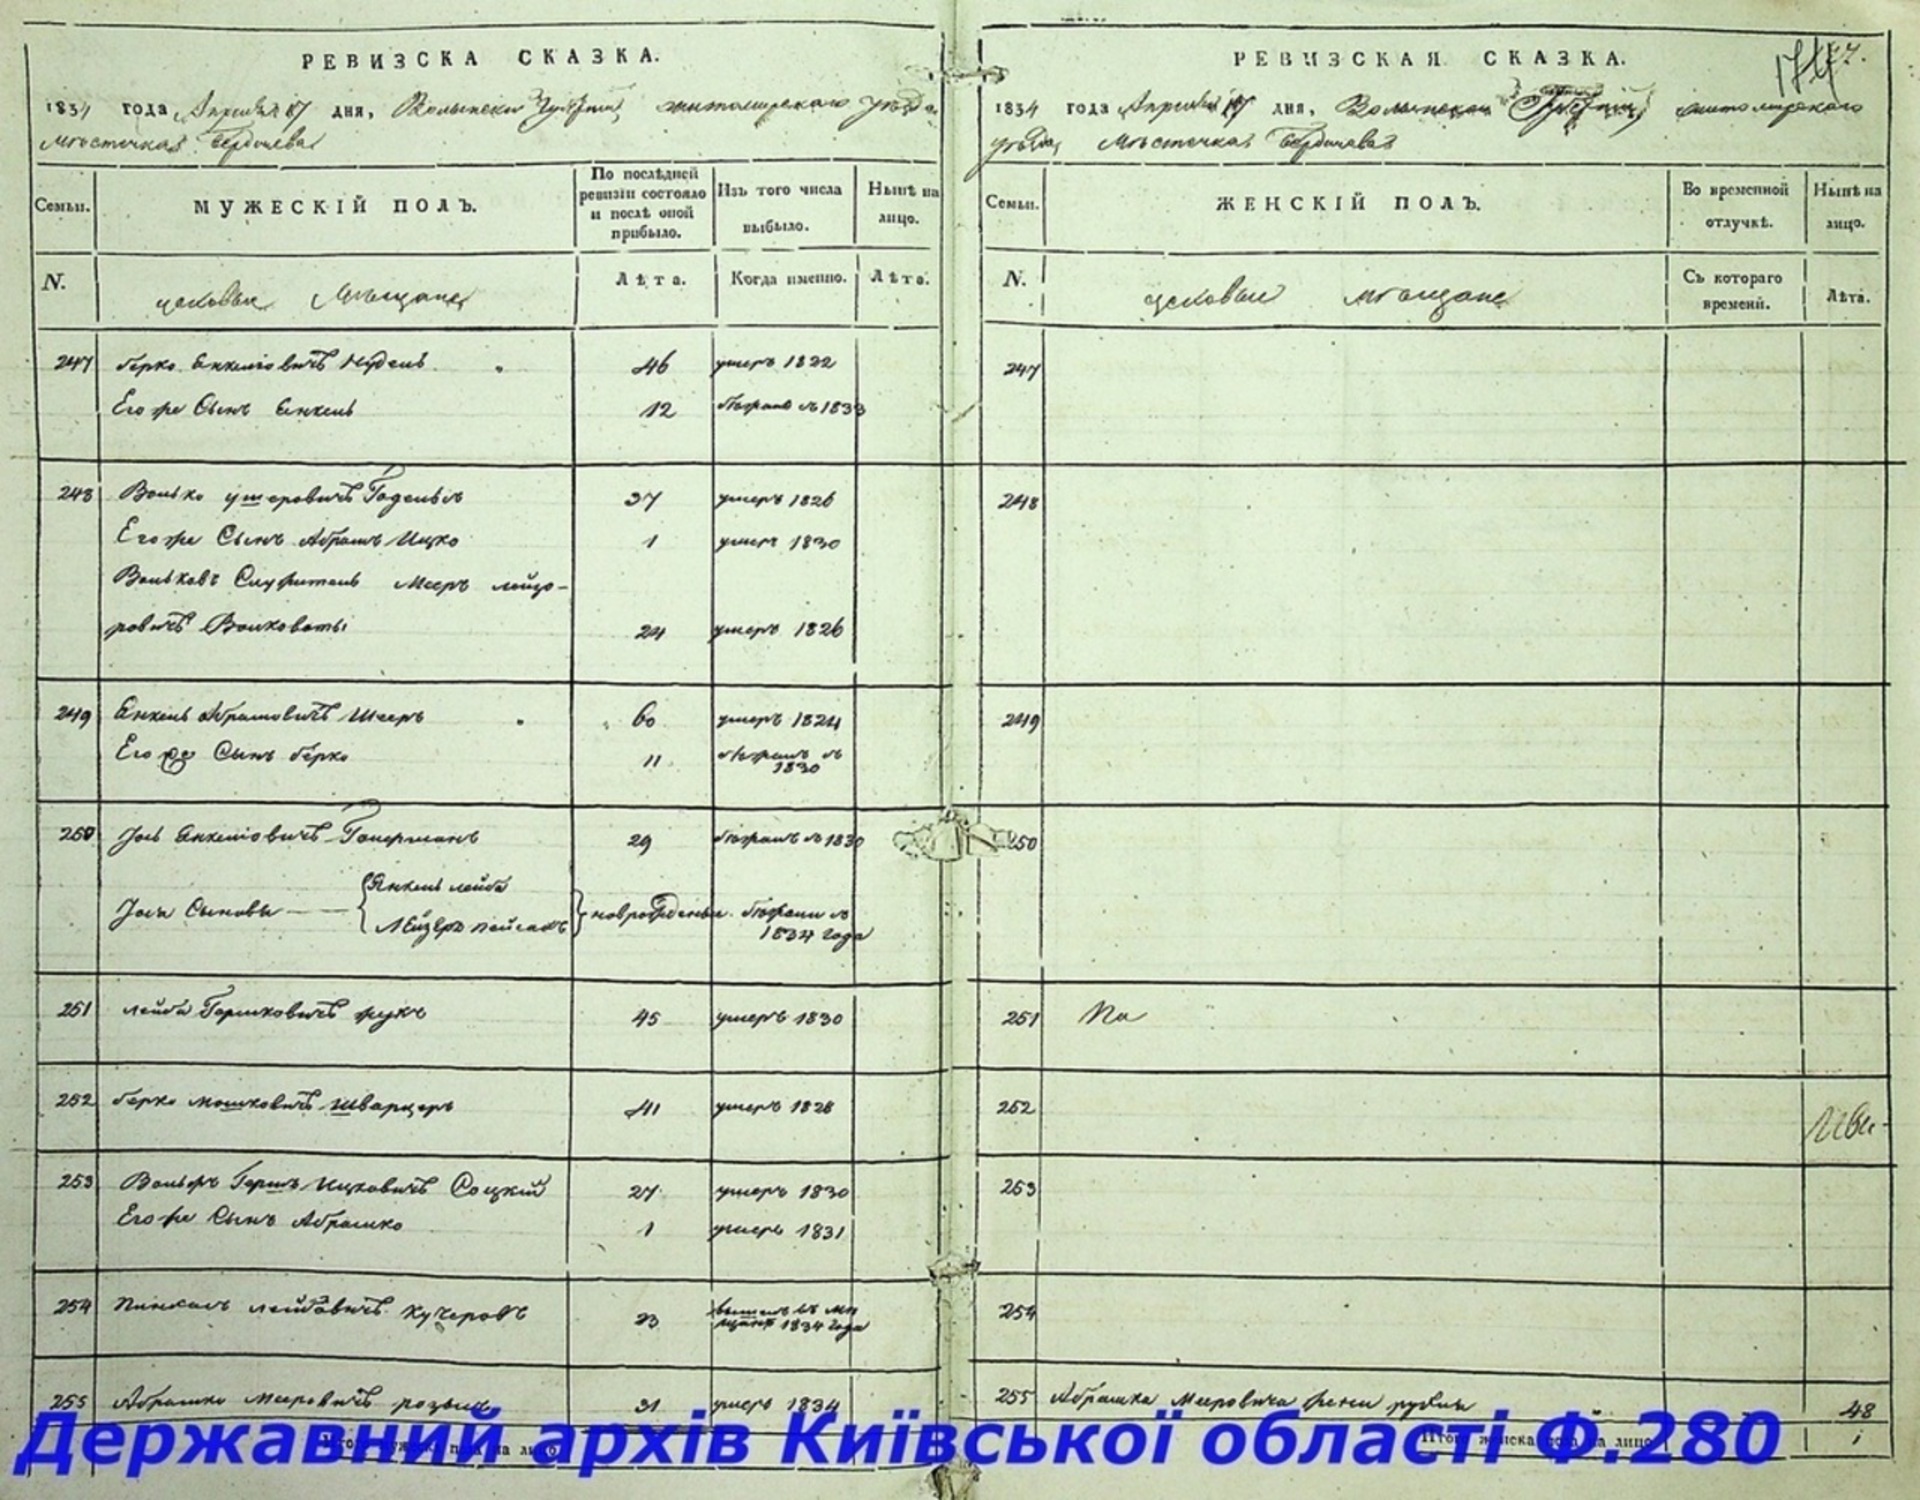 РЕВИЗСКА СКАЗКА.
1834 года Апреля 17 дня, Волынской Губерніи Житомирского уезда
Мѣстечка Бердичева
Семьи.
МУЖЕСКІЙ ПОЛЪ.
По послѣдней ревизіи состояло и послѣ оной прибыло.
Изъ того числа выбыло.
Нынѣ на лицо.
N.
Лѣта.
Когда именно.
Лѣта.
цеховые Мѣщане
247 Берко Янкелiовичъ 46 умеръ 1822
Его же Сынъ Янкель 12 1833
248 Волько Ушеровичъ 37 умеръ 1826
Его же Сынъ Абрамъ Ицко 1 умеръ 1830
Мееръ Лейзо-
ровичъ 24 умеръ 1826
249 Янкель Абрамовичъ 60 умеръ 1824
Его же Сынъ Берко 11
1830
250 Іось Янкелiовичъ 29 1830
Янкель Лейба
Іося Сыновья
Лейзеръ Пейсахъ новорожденные
1834 года
251 Лейба Гершковичъ Жукъ 45 умеръ 1830
252 Берко Мошковичъ Шварцеръ 41 умеръ 1828
253 Вольфъ Гершъ Ицковичъ Соцкій 27 умеръ 1830
Его же Сынъ Абрашко 1 умеръ 1831
254 Пинхасъ Лейбовичъ Кучеровъ 23
1834 года
255 Абрашко Мееровичъ 31 умеръ 1834
РЕВИЗСКАЯ СКАЗКА.
1834 года Апреля 17 дня, Волынской Губерніи Житомирского
уезда Мѣстечка Бердичева
Семьи.
ЖЕНСКІЙ ПОЛЪ.
Во временной отлучкѣ.
Нынѣ на лицо.
N.
Съ котораго времени.
Лѣта.
цеховые мѣщане
247
248
249
250
251
252
253
254
255 Абрашка Мееровича жена 48
Итого женска пола на лицо 1
Державний архів Київської області Ф.280